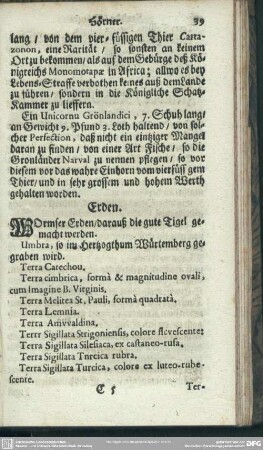 Hörner. 39
lang / von dem vier-füssigen Thier Carta-
zonon, eine Rarität / so sonsten an keinem
Ort zu bekommen / als auf dem Gebürge deß Kö-
nigreichs Monomotapæ in Africa; allwo es bey
Lebens-Straffe verbothen keines auß dem Lande
zu führen / sondern in die Königliche Schatz-
Kammer zu lieffern.
Ein Unicornu Grönlandici, 7. Schuh lang /
an Gewicht 9. Pfund 3. Loth haltend / von sol-
cher Perfection, daß nicht ein einziger Mangel
daran zu finden / von einer Art Fische / so die
Gronländer Narval zu nennen pflegen / so vor
diesem vor das wahre Einhorn vom vierfüssigem
Thier / und in sehr grossem und hohem Werth
gehalten worden.
Erden.
WOrmser Erden / darauß die gute Tigel ge-
macht werden.
Umbra, so im Hertzogthum Würtemberg ge-
graben wird.
Terra Catechou.
Terra cimbrica, formâ & magnitudine ovali,
cum Imagine B. Virginis.
Terra Melites St. Pauli, formâ quadratâ.
Terra Lemnia.
Terra Amvvaldina.
Terra Sigillata Strigoniensis, colore flcvescente;
Terra Sigillata Silesiaca, ex castaneo-rufa.
Terra Sigillata Tnrcica rubra.
Terra Sigillata Turcica, colore ex luteo-rube-
scente.
C 5 Ter-